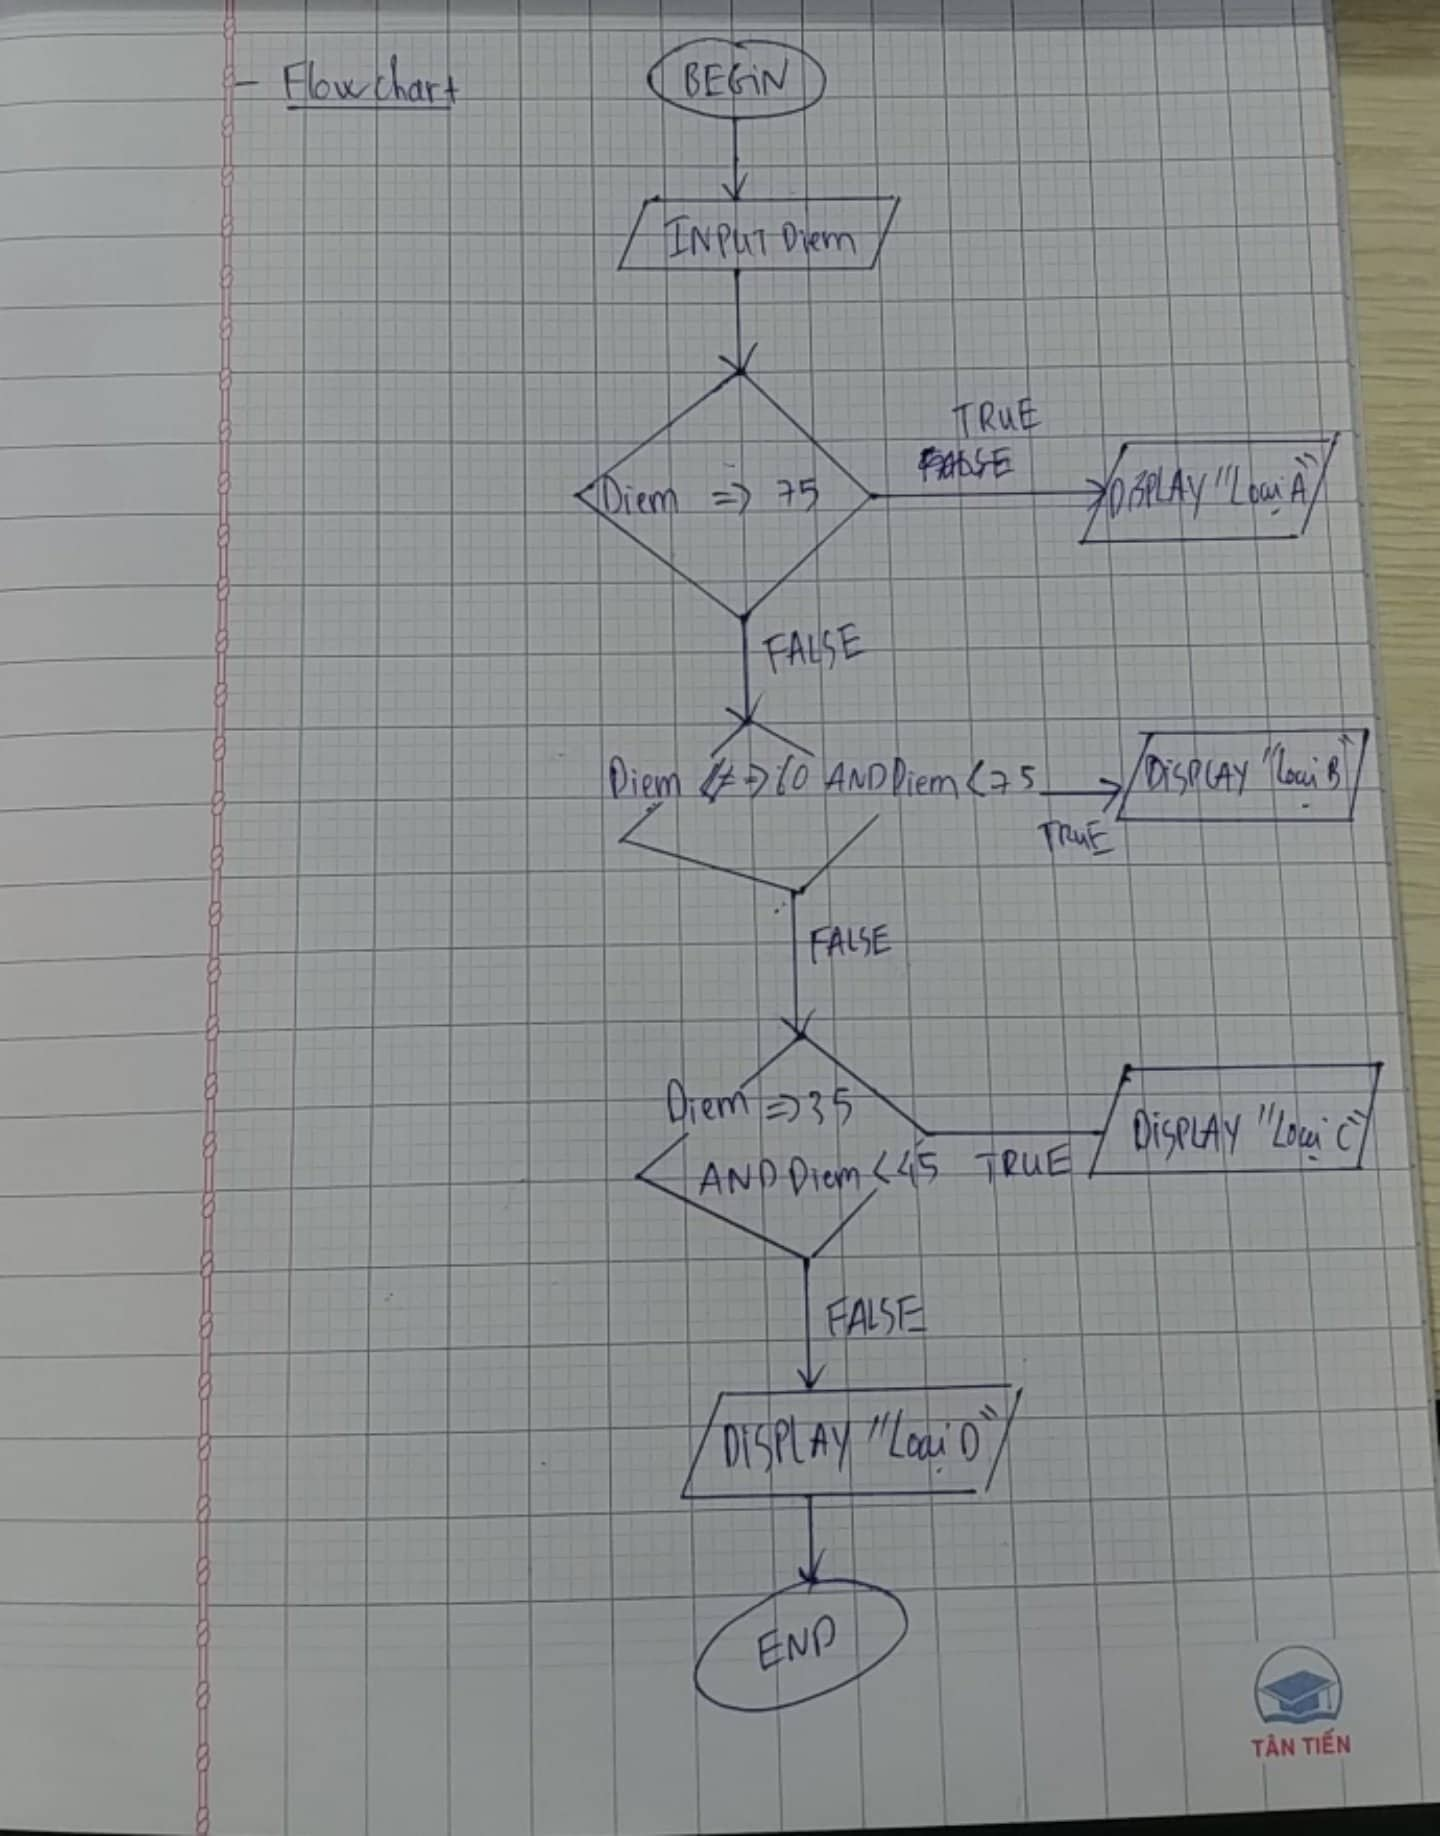 - Flowchart
BEGiN
INPUT Diem
TRUE
FALSE
Diem => 75
DiSPLAY "Loại A"
FALSE
Diem => 60 AND Diem < 75
DiSPLAY "Loại B"
TRUE
FALSE
Diem => 35
AND Diem < 45
TRUE
DiSPLAY "Loại C"
FALSE
DISPLAY "Loại D"
END
TÂN TIẾN